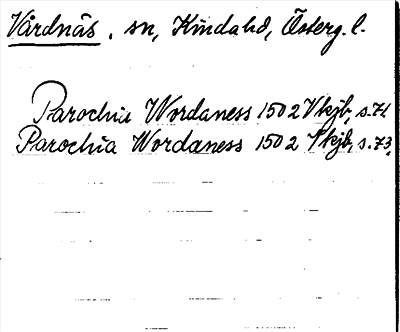 Vårdnäs, sn, Kinda hd, Österg. l.
Parochia Wordaness 1502 Vkjb, s. 71
Parochia Wordaness 1502 Vkjb, s. 73.